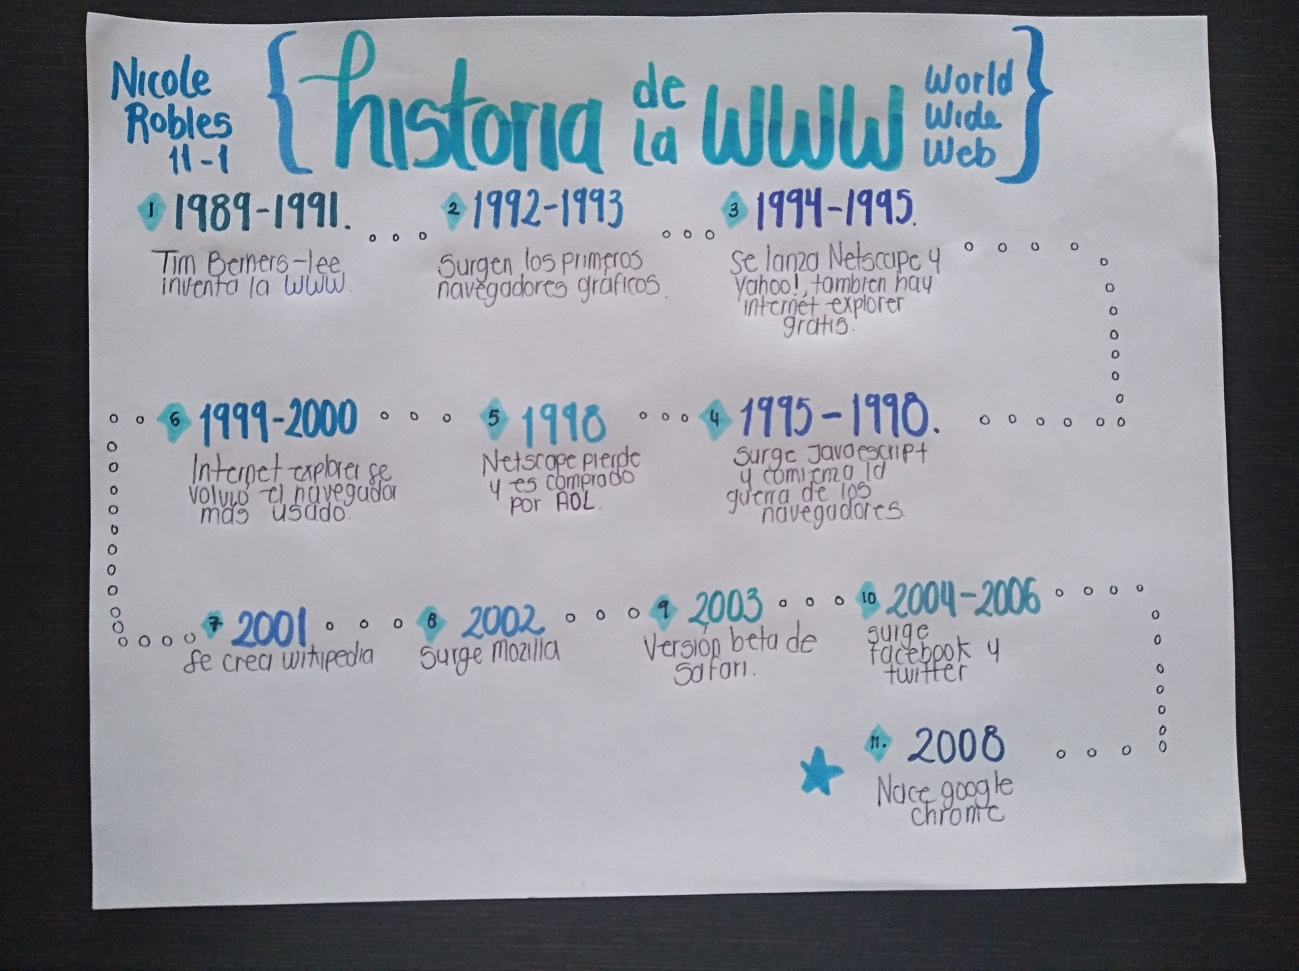 Nicole
Robles
11-1
{ historia de la WWW World Wide Web }
1 1989-1991.
Tim Berners-lee
inventa la WWW.
2 1992-1993
Surgen los primeros
navegadores gráficos.
3 1994-1995.
se lanza Netscape y
Yahoo!, tambien hay
internet explorer
gratis.
4 1995-1998.
Surge Javaescript
y comienza la
guerra de los
navegadores.
5 1998
Netscape pierde
y es comprado
por AOL.
6 1999-2000
Internet explorer se
volvió el navegador
más usado.
7 2001
Se crea wikipedia
8 2002
Surge Mozilla
9 2003
Versión beta de
Safari.
10 2004-2006
surge
facebook y
twitter
11. 2008
Nace google
chrome